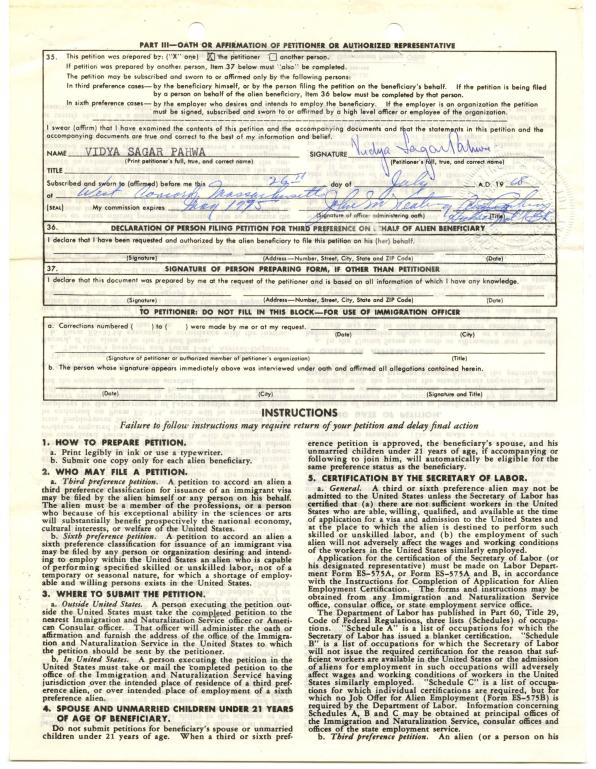 PART III—OATH OR AFFIRMATION OF PETITIONER OR AUTHORIZED REPRESENTATIVE
35. This petition was prepared by: ("X" one) [X] the petitioner [ ] another person.
If petition was prepared by another person, Item 37 below must "also" be completed.
The petition may be subscribed and sworn to or affirmed only by the following persons:
In third preference cases—by the beneficiary himself, or by the person filing the petition on the beneficiary's behalf. If the petition is being filed
by a person on behalf of the alien beneficiary, Item 36 below must be completed by that person.
In sixth preference cases—by the employer who desires and intends to employ the beneficiary. If the employer is an organization the petition
must be signed, subscribed and sworn to or affirmed by a high level officer or employee of the organization.
I swear (affirm) that I have examined the contents of this petition and the accompanying documents and that the statements in this petition and the
accompanying documents are true and correct to the best of my information and belief.
NAME VIDYA SAGAR PAHWA SIGNATURE Vidya Sagar Pahwa
(Print petitioner's full, true, and correct name) (Petitioner's full, true, and correct name)
TITLE
Subscribed and sworn to (affirmed) before me this 26th day of July A.D. 19 68
at West Concord, Massachusetts
(SEAL) My commission expires May 1975 John M
(Signature of officer administering oath) (Title)
36. DECLARATION OF PERSON FILING PETITION FOR THIRD PREFERENCE ON BEHALF OF ALIEN BENEFICIARY
I declare that I have been requested and authorized by the alien beneficiary to file this petition on his (her) behalf.
(Signature) (Address—Number, Street, City, State and ZIP Code) (Date)
37. SIGNATURE OF PERSON PREPARING FORM, IF OTHER THAN PETITIONER
I declare that this document was prepared by me at the request of the petitioner and is based on all information of which I have any knowledge.
(Signature) (Address—Number, Street, City, State and ZIP Code) (Date)
TO PETITIONER: DO NOT FILL IN THIS BLOCK—FOR USE OF IMMIGRATION OFFICER
a. Corrections numbered ( ) to ( ) were made by me or at my request.
(Date) (City)
(Signature of petitioner or authorized member of petitioner's organization) (Title)
b. The person whose signature appears immediately above was interviewed under oath and affirmed all allegations contained herein.
(Date) (City) (Signature and Title)
INSTRUCTIONS
Failure to follow instructions may require return of your petition and delay final action
1. HOW TO PREPARE PETITION.
a. Print legibly in ink or use a typewriter.
b. Submit one copy only for each alien beneficiary.
2. WHO MAY FILE A PETITION.
a. Third preference petition. A petition to accord an alien a
third preference classification for issuance of an immigrant visa
may be filed by the alien himself or any person on his behalf.
The alien must be a member of the professions, or a person
who because of his exceptional ability in the sciences or arts
will substantially benefit prospectively the national economy,
cultural interests, or welfare of the United States.
b. Sixth preference petition. A petition to accord an alien a
sixth preference classification for issuance of an immigrant visa
may be filed by any person or organization desiring and intend-
ing to employ within the United States an alien who is capable
of performing specified skilled or unskilled labor, not of a
temporary or seasonal nature, for which a shortage of employ-
able and willing persons exists in the United States.
3. WHERE TO SUBMIT THE PETITION.
a. Outside United States. A person executing the petition out-
side the United States must take the completed petition to the
nearest Immigration and Naturalization Service officer or Ameri-
can Consular officer. That officer will administer the oath or
affirmation and furnish the address of the office of the Immigra-
tion and Naturalization Service in the United States to which
the petition should be sent by the petitioner.
b. In United States. A person executing the petition in the
United States must take or mail the completed petition to the
office of the Immigration and Naturalization Service having
jurisdiction over the intended place of residence of a third pref-
erence alien, or over intended place of employment of a sixth
preference alien.
4. SPOUSE AND UNMARRIED CHILDREN UNDER 21 YEARS
OF AGE OF BENEFICIARY.
Do not submit petitions for beneficiary's spouse or unmarried
children under 21 years of age. When a third or sixth pref-
erence petition is approved, the beneficiary's spouse, and his
unmarried children under 21 years of age, if accompanying or
following to join him, will automatically be eligible for the
same preference status as the beneficiary.
5. CERTIFICATION BY THE SECRETARY OF LABOR.
a. General. A third or sixth preference alien may not be
admitted to the United States unless the Secretary of Labor has
certified that (a) there are not sufficient workers in the United
States who are able, willing, qualified, and available at the time
of application for a visa and admission to the United States and
at the place to which the alien is destined to perform such
skilled or unskilled labor, and (b) the employment of such
alien will not adversely affect the wages and working conditions
of the workers in the United States similarly employed.
Application for the certification of the Secretary of Labor (or
his designated representative) must be made on Labor Depart-
ment Form ES-575A, or Form ES-575A and B, in accordance
with the Instructions for Completion of Application for Alien
Employment Certification. The forms and instructions may be
obtained from any Immigration and Naturalization Service
office, consular office, or state employment service office.
The Department of Labor has published in Part 60, Title 29,
Code of Federal Regulations, three lists (Schedules) of occupa-
tions. "Schedule A" is a list of occupations for which the
Secretary of Labor has issued a blanket certification. "Schedule
B" is a list of occupations for which the Secretary of Labor
will not issue the required certification for the reason that suf-
ficient workers are available in the United States or the admission
of aliens for employment in such occupations will adversely
affect wages and working conditions of workers in the United
States similarly employed. "Schedule C" is a list of occupa-
tions for which individual certifications are required, but for
which no Job Offer for Alien Employment (Form ES-575B) is
required by the Department of Labor. Information concerning
Schedules A, B and C may be obtained at principal offices of
the Immigration and Naturalization Service, consular offices and
offices of the state employment service.
b. Third preference petition. An alien (or a person on his